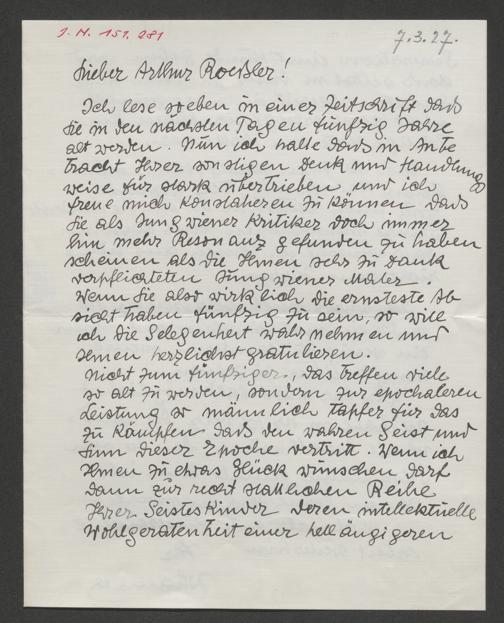 I. N. 151.281
7.3.27.
Lieber Arthur Roeßler!
Ich lese soeben in einer Zeitschrift daß
Sie in den nächsten Tagen fünfzig Jahre
alt werden. Nun ich halte das in Anbe
tracht Ihrer sonstigen Denk und Handlungs
weise für stark übertrieben und ich
freue mich konstatieren zu können daß
Sie als Jungwiener Kritiker doch immer
hin mehr Resonanz gefunden zu haben
scheinen als die Ihnen sehr zu Dank
verpflichteten Jungwiener Maler.
Wenn Sie also wirklich die ernsteste Ab
sicht haben fünfzig zu sein, so will
ich die Gelegenheit wahrnehmen und
Ihnen herzlichst gratulieren.
Nicht zum fünfziger, das treffen viele
so alt zu werden, sondern zur epochaleren
Leistung so männlich tapfer für das
zu kämpfen das den wahren Geist und
Sinn dieser Epoche vertritt. Wenn ich
Ihnen zu etwas Glück wünschen darf
dann zur recht stattlichen Reihe
Ihrer Geisteskinder deren intellektuelle
Wohlgeratenheit einer helläugigeren